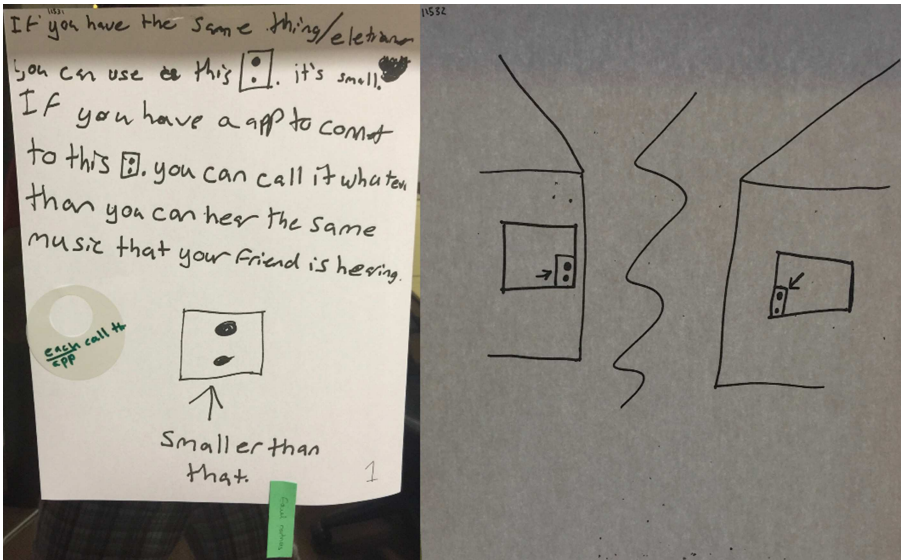 If you have the same thing/eletronic
you can use this . it's small.
If you have a app to connet
to this . you can call it whatever
than you can hear the same
music that your friend is hearing.
each call the
app
smaller than
that.
1
11532